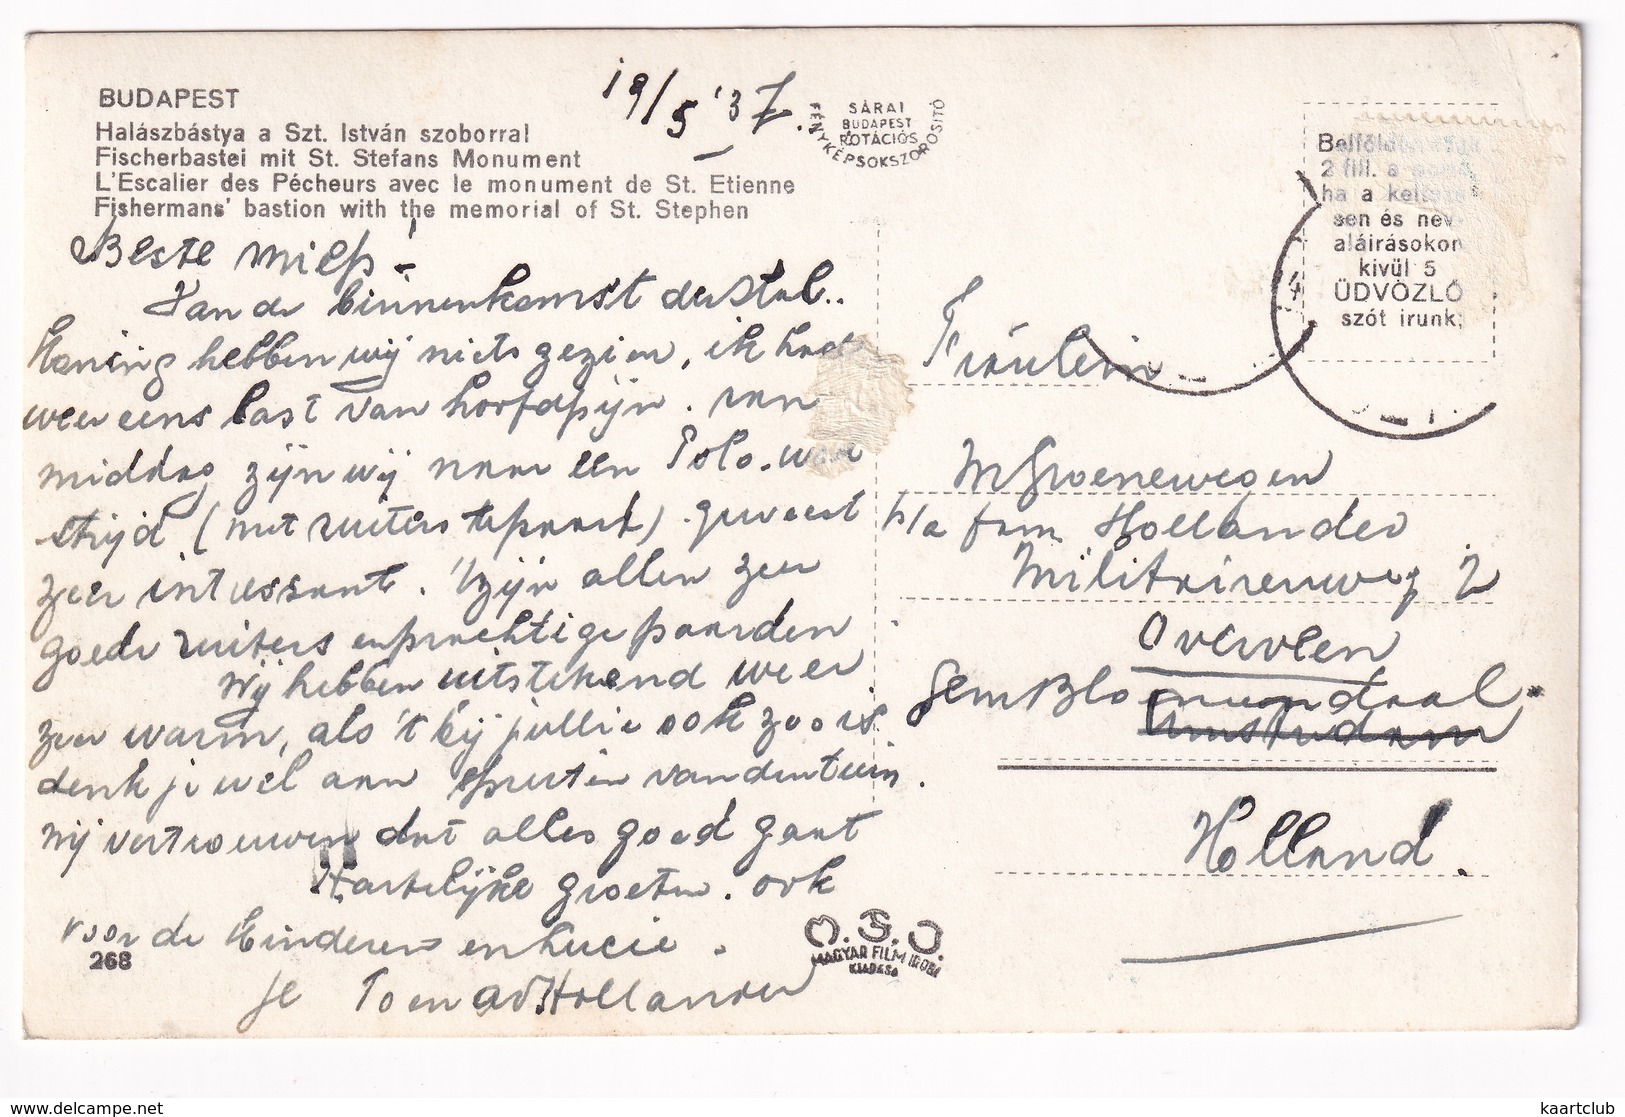 BUDAPEST
Halászbástya a Szt. István szoborral
Fischerbastei mit St. Stefans Monument
L'Escalier des Pécheurs avec le monument de St. Etienne
Fishermans' bastion with the memorial of St. Stephen
19/5 '37.
SÁRAI
BUDAPEST
ROTÁCIÓS
FÉNYKÉPSOKSZOROSITÓ
Beste Miep!
Van de binnenkomst der Ital..
Koning hebben wij niets gezien, ik had
weer eens last van hoofdpijn. van
middag zijn wij naar een Polo. wed
strijd (met ruiters te paard) geweest
zeer interessant. 't zijn allen zeer
goede ruiters en prachtige paarden
Wij hebben uitstekend weer
zeer warm, als 't bij jullie ook zoo is
denk je wel aan spuiten van den tuin.
Wij vertrouwen dat alles goed gaat
Hartelijke groeten. ook
voor de Kinderen en Lucie.
268
je Toen Hollander
M.F.I.
MAGYAR FILM IRODA
KIADÁSA
Belföldön csak
2 fill. a
ha a kelte
sen és név-
aláirásokon
kivül 5
ÜDVÖZLŐ
szót irunk.
Fräulein
M Groenewegen
p/a fam Hollander
Militairenweg 2
Overveen
Gem Bloemendaal.
Amsterdam
Holland.
kaartclub